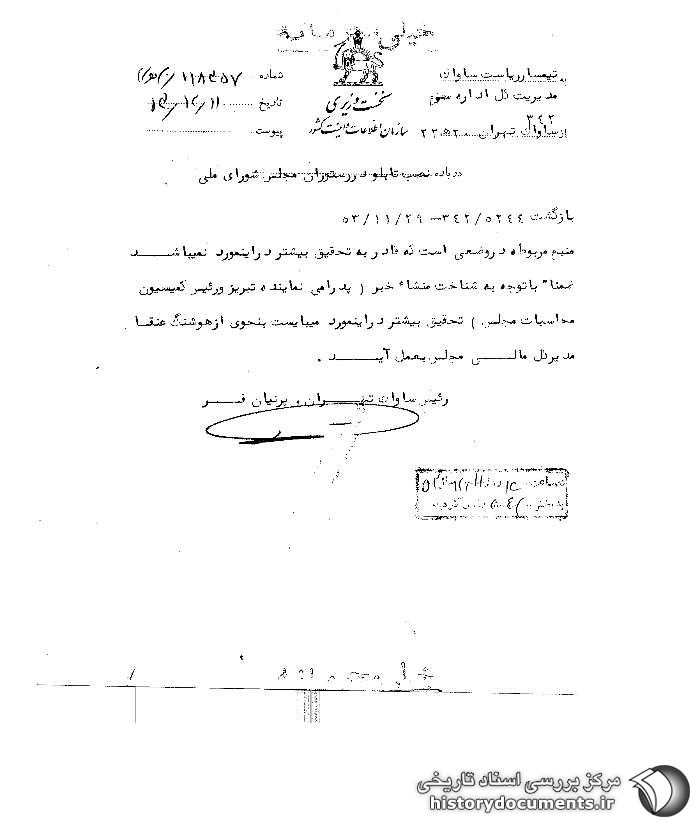 خیلی محرمانه
به تیمسار ریاست ساواک شماره
مدیریت کل اداره سوم نخست وزیری تاریخ
۳۴۲
از ساواک تهران ۲۲ ه ۲۰ سازمان اطلاعات و امنیت کشور پیوست
درباره نصب تابلو در رستوران مجلس شورای ملی
بازگشت ۳۴۲/۵۲۴۴ – ۵۳/۱۱/۲۹
منبع مربوطه در وضعی است که قادر به تحقیق بیشتر در اینمورد نمیباشد
ضمنا" با توجه به شناخت منشاء خبر ( پدرامی نماینده تبریز ورئیس کمیسیون
محاسبات مجلس ) تحقیق بیشتر در اینمورد میبایست بنحوی از هوشنگ عنقا
مدیرکل مالی مجلس بعمل آید .
رئیس ساواک تهران . پرنیان فر
خیلی محرمانه
مرکز بررسی اسناد تاریخی
historydocuments.ir